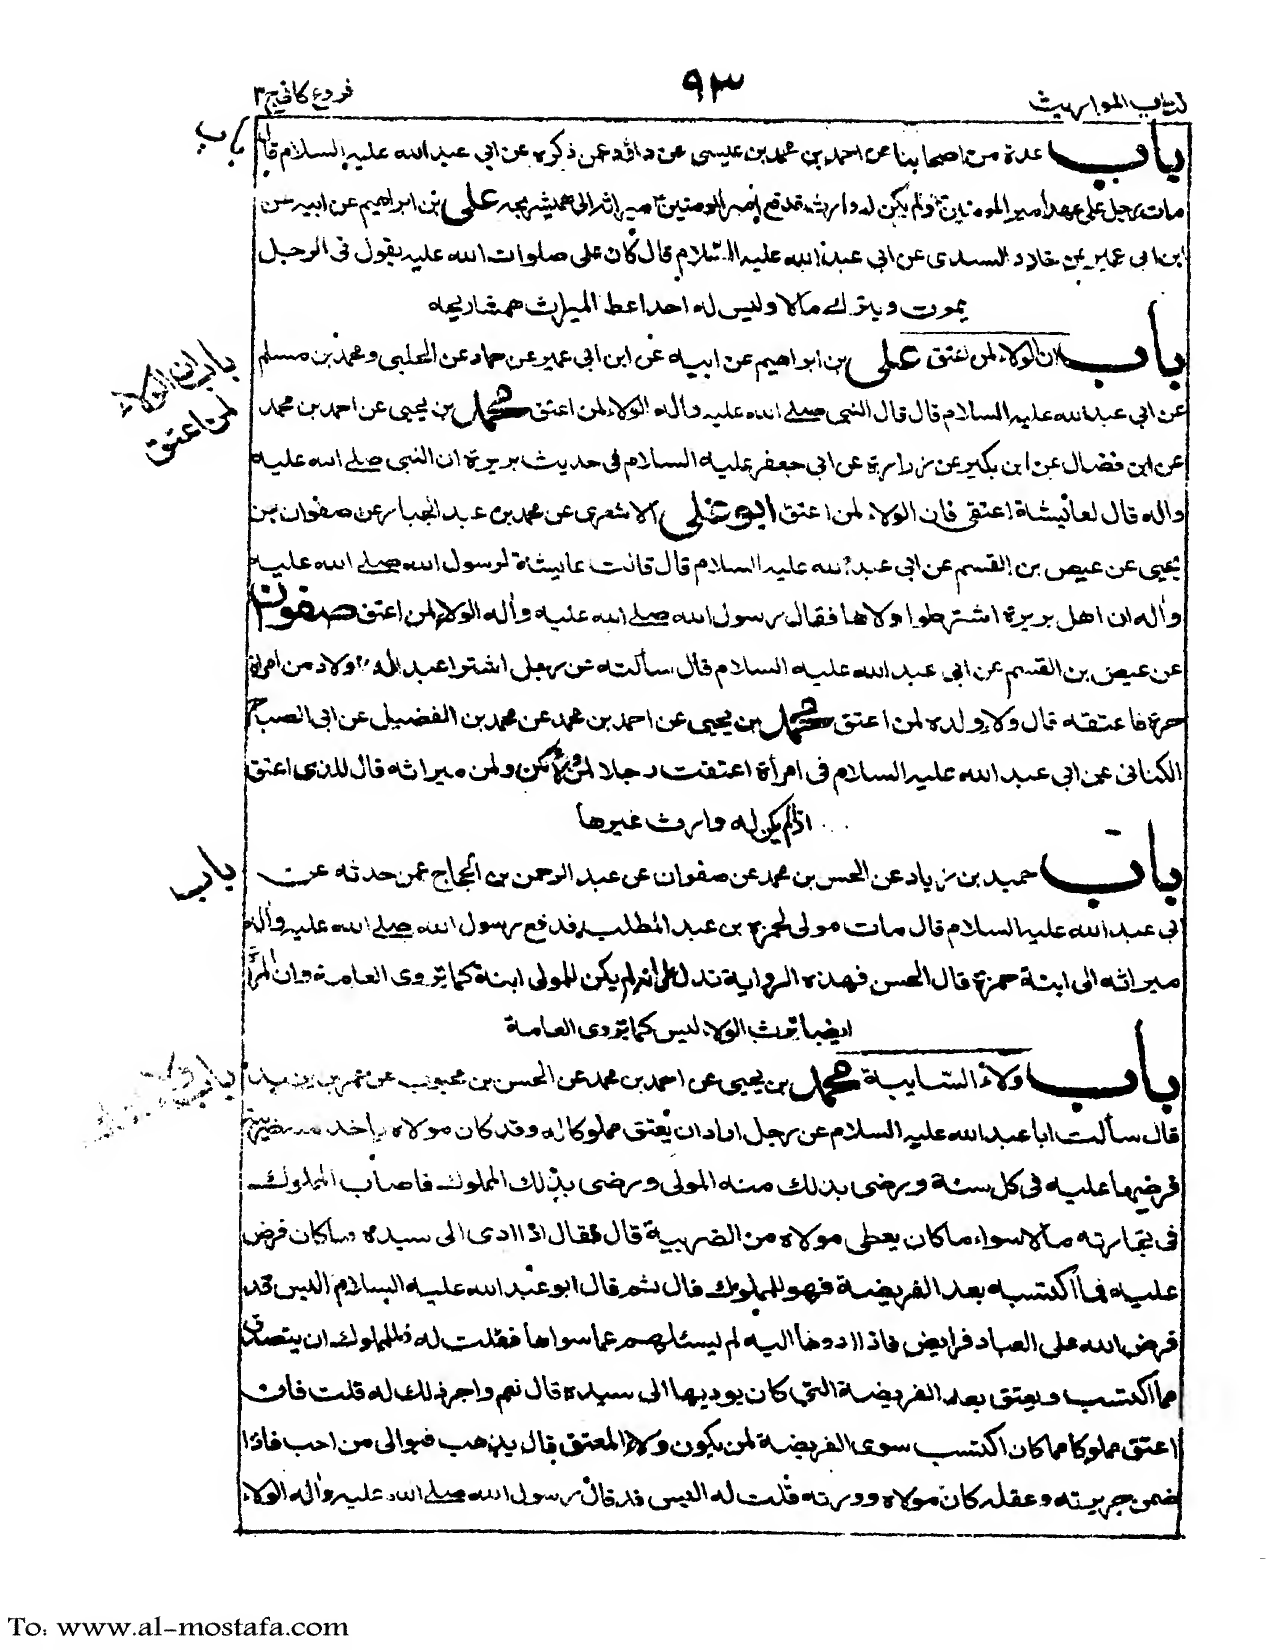 كتاب المواريث
٩٣
فروع كافي ج ٣
باب
باب عدة من اصحابنا عن احمد بن محمد بن عيسى عن داود عمن ذكره عن ابي عبد الله عليه السلام قال
مات رجل على عهد امير المومنين ولم يكن له وارث فدفع امير المومنين ميراثه الى همشيريجه علي بن ابراهيم عن ابيه عن
ابن ابي عمير عن خلاد السندى عن ابي عبد الله عليه السلام قال كان على صلوات الله عليه يقول فى الرجل
يموت ويترك مالا وليس له احد اعط الميراث همشاريجه
باب ان الولاء لمن اعتق علي بن ابراهيم عن ابيه عن ابن ابي عمير عن حماد عن الحلبى ومحمد بن مسلم
باب ان الولاء
لمن اعتق
عن ابي عبد الله عليه السلام قال قال النبى صلے الله عليه واله الولاء لمن اعتق محمد بن يحيى عن احمد بن محمد
عن ابن فضال عن ابن بكير عن زرارة عن ابي جعفر عليه السلام فى حديث بريرة ان النبى صلے الله عليه
واله قال لعائيشة اعتقى فان الولاء لمن اعتق ابو علي الاشعرى عن محمد بن عبد الجبار عن صفوان بن
يحيى عن عيص بن القسم عن ابي عبد الله عليه السلام قال قالت عايشة لرسول الله صلے الله عليه
واله ان اهل بريرة اشترطوا ولاها فقال رسول الله صلے الله عليه واله الولاء لمن اعتق صفوان
عن عيص بن القسم عن ابي عبد الله عليه السلام قال سألته عن رجل اشترا عبدا له اولاد من امراة
حرة فاعتقه قال ولاء ولده لمن اعتق محمد بن يحيى عن احمد بن محمد عن محمد بن الفضيل عن ابي الصباح
الكنانى عن ابي عبد الله عليه السلام فى امرأة اعتقت رجلا لمن ولاؤه ولمن ميراثه قال للذى اعتق
اذا لم يكن له وارث غيرها
باب حميد بن زياد عن الحسن بن محمد عن صفوان عن عبد الرحمن بن الحجاج عمن حدثه عن
باب
ابي عبد الله عليه السلام قال مات مولى لحمزة بن عبد المطلب فدفع رسول الله صلے الله عليه واله
ميراثه الى ابنة حمزة قال الحسن فهذه الرواية تدل على انه لم يكن للمولى ابنة كما تروى العامة وان المرأة
ايضا ترث الولاء ليس كما تروى العامة
باب ولاء السايبة محمد بن يحيى عن احمد بن محمد عن الحسن بن محبوب عن عمر بن يزيد
باب ولاء
قال سألت ابا عبد الله عليه السلام عن رجل اراد ان يعتق مملوكا له وقد كان مولاه ياخذ منه ضريبة
فرضها عليه فى كل سنة ورضى بذلك منه المولى ورضى بذلك المملوك فاصاب المملوك
فى تجارته مالا سواء ما كان يعطى مولاه من الضريبة قال فقال اذا ادى الى سيده ما كان فرض
عليه فما اكتسبه بعد الفريضة فهو للمملوك قال ثم قال ابو عبد الله عليه السلام اليس قد
فرض الله على العباد فرايض فاذا ادوها اليه لم يسئلهم عما سواها فقلت له فللمملوك ان يتصدق
مما اكتسب ويعتق بعد الفريضة التى كان يوديها الى سيده قال نعم واجر ذلك له قلت فان
اعتق مملوكا مما كان اكتسب سوى الفريضة لمن يكون ولاء المعتق قال يذهب فيوالى من احب فاذا
ضمن جريرته وعقله كان مولاه وورثه قلت له اليس قد قال رسول الله صلے الله عليه واله الولاء
To: www.al-mostafa.com